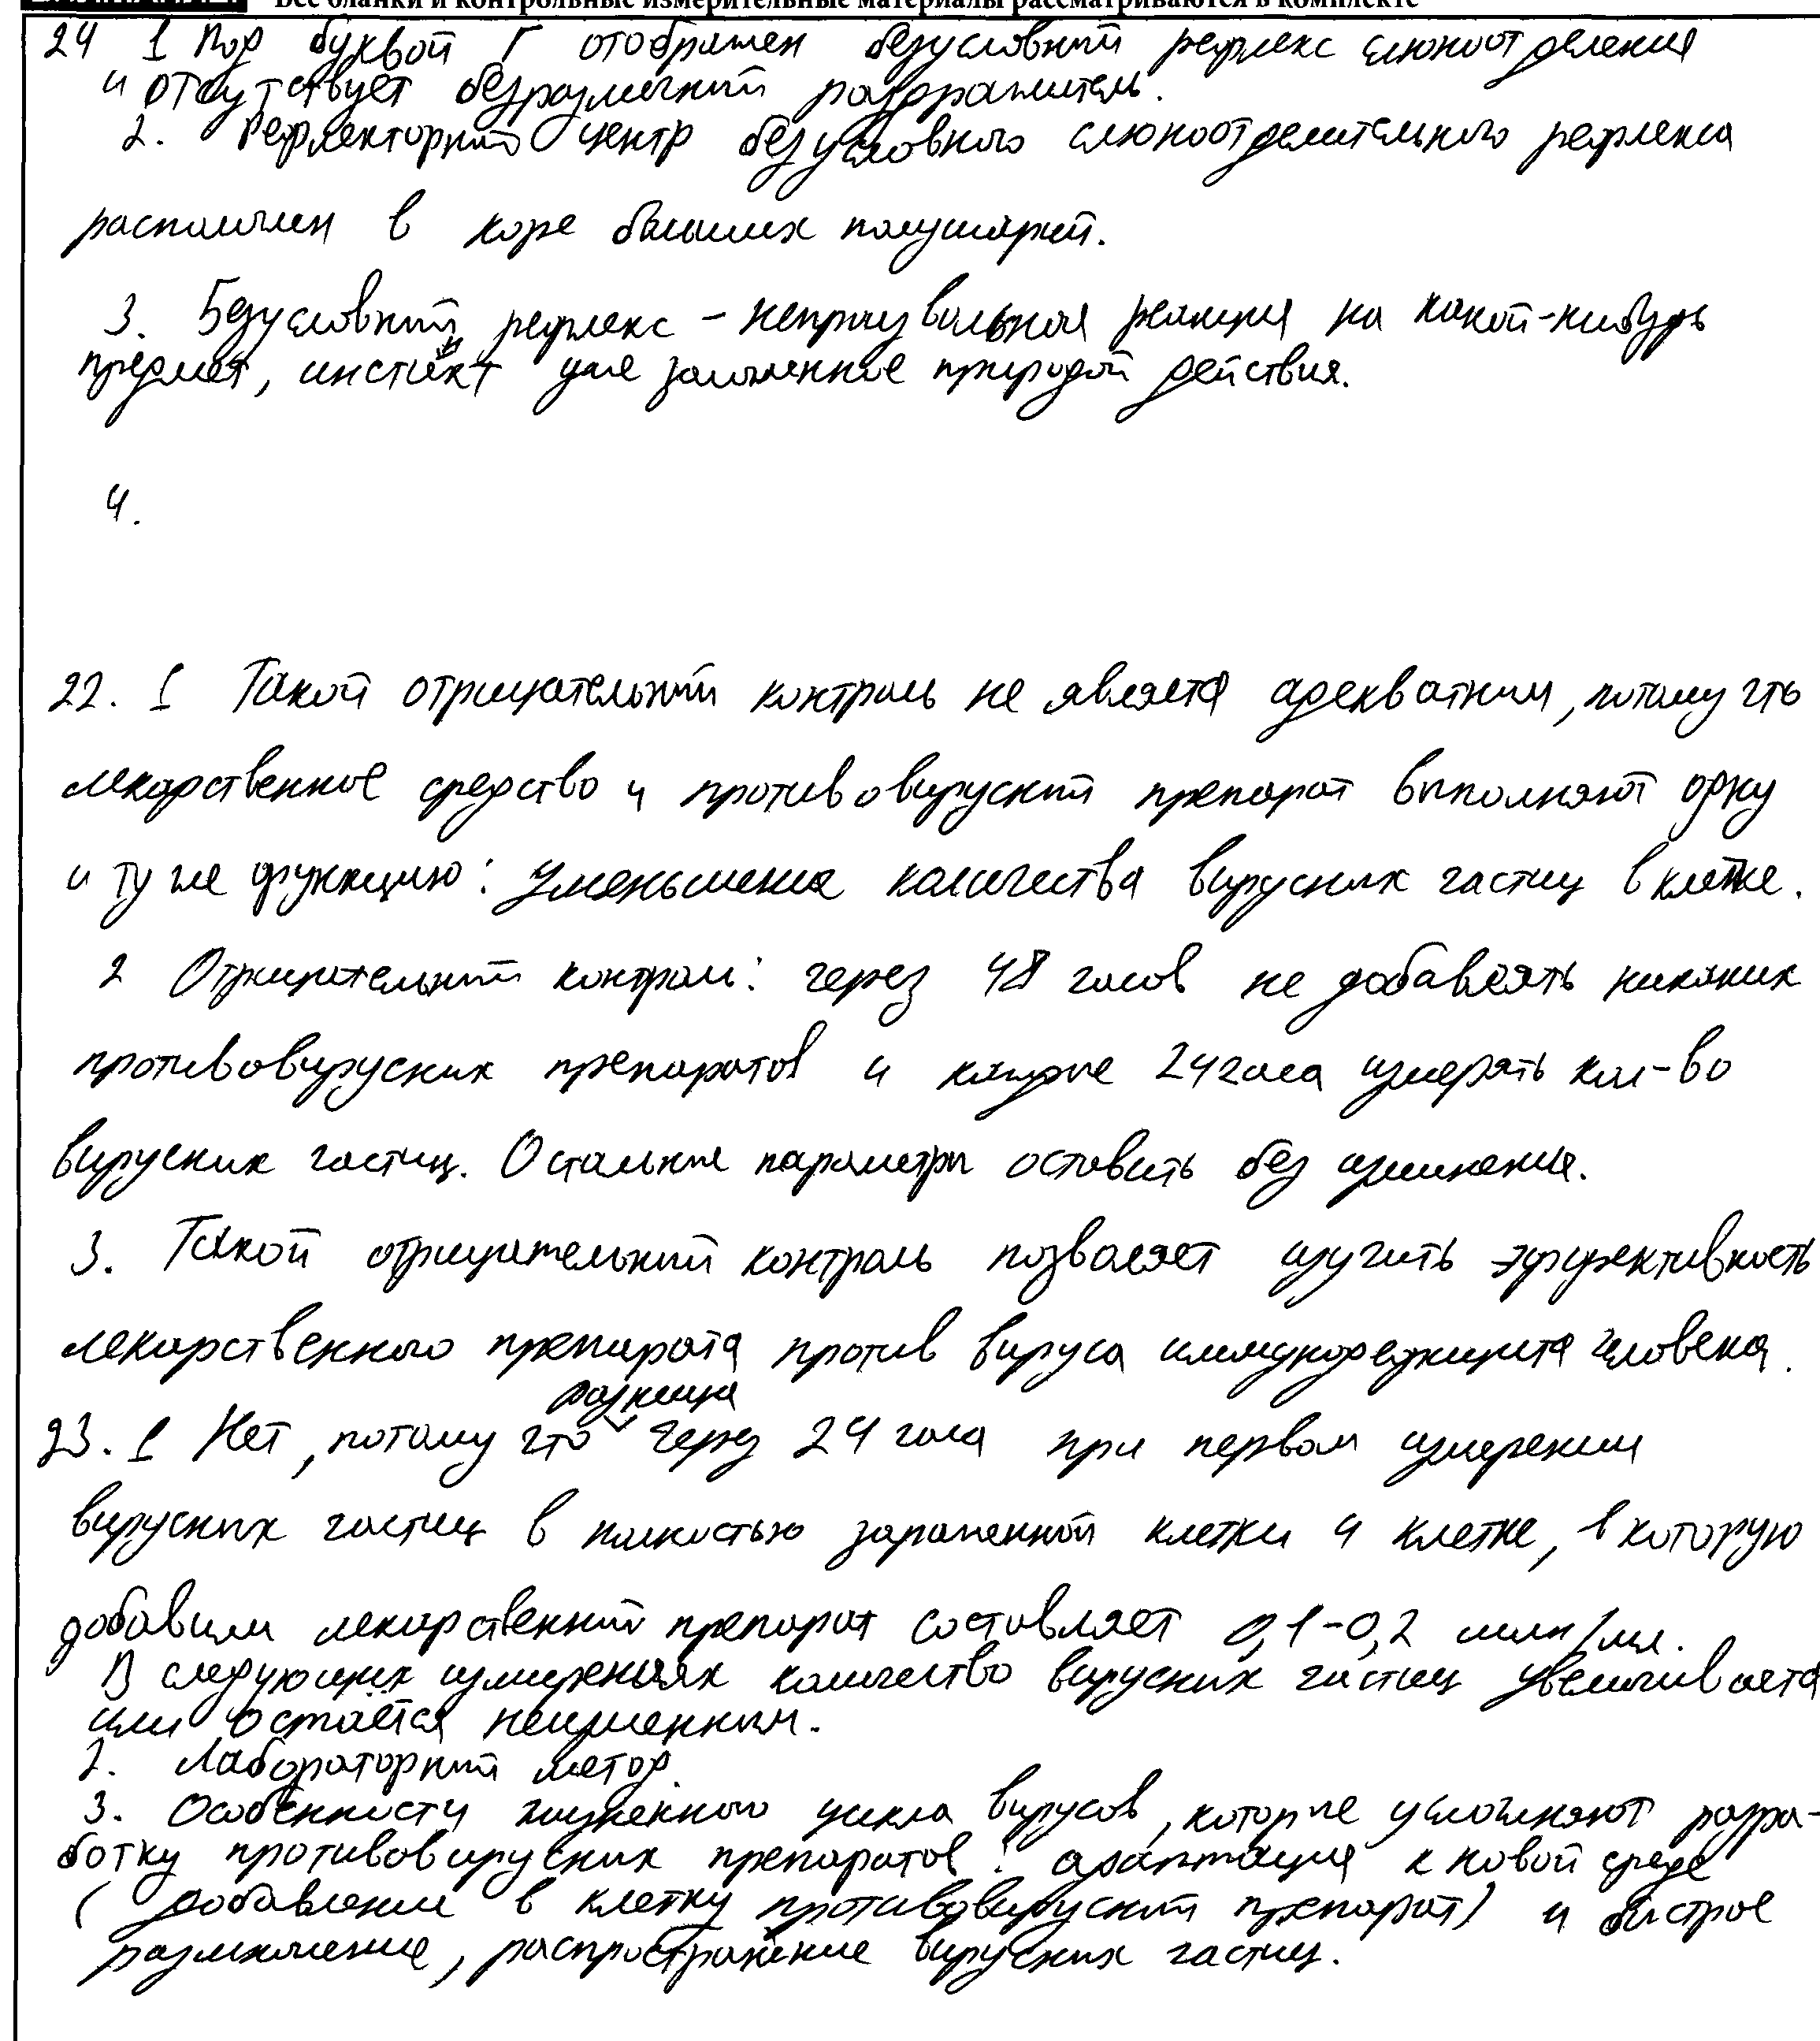 Все бланки и контрольные измерительные материалы рассматриваются в комплекте
24 1 Под буквой Г отображен безусловный рефлекс слюноотделения
и отсутствует безразличный раздражитель.
2. Рефлекторный центр безусловного слюноотделительного рефлекса
расположен в коре больших полушарий.
3. Безусловный рефлекс – непроизвольная реакция на какой-нибудь
предмет, инстинкт уже заложенное природой действия.
4.
22. 1 Такой отрицательный контроль не является адекватным, потому что
лекарственное средство и противовирусный препарат выполняют одну
и ту же функцию: уменьшение количества вирусных частиц в клетке.
2 Отрицательный контроль: через 48 часов не добавлять никаких
противовирусных препаратов и каждые 24 часа измерять кол-во
вирусных частиц. Остальные параметры оставить без изменения.
3. Такой отрицательный контроль позволяет изучить эффективность
лекарственного препарата против вируса иммунодефицита человека.
разница
23. 1 Нет, потому что через 24 часа при первом измерении
вирусных частиц в полностью зараженной клетки и клетке, в которую
добавили лекарственный препарат составляет 0,1-0,2 млн/мл.
В следующих измерениях количество вирусных частиц увеличивается
или остаётся неизменным.
2. Лабораторный метод.
3. Особенности жизненного цикла вирусов, которые усложняют разра-
ботку противовирусных препаратов: адаптация к новой среде
(добавление в клетку противовирусный препарат) и быстрое
размножение, распространение вирусных частиц.